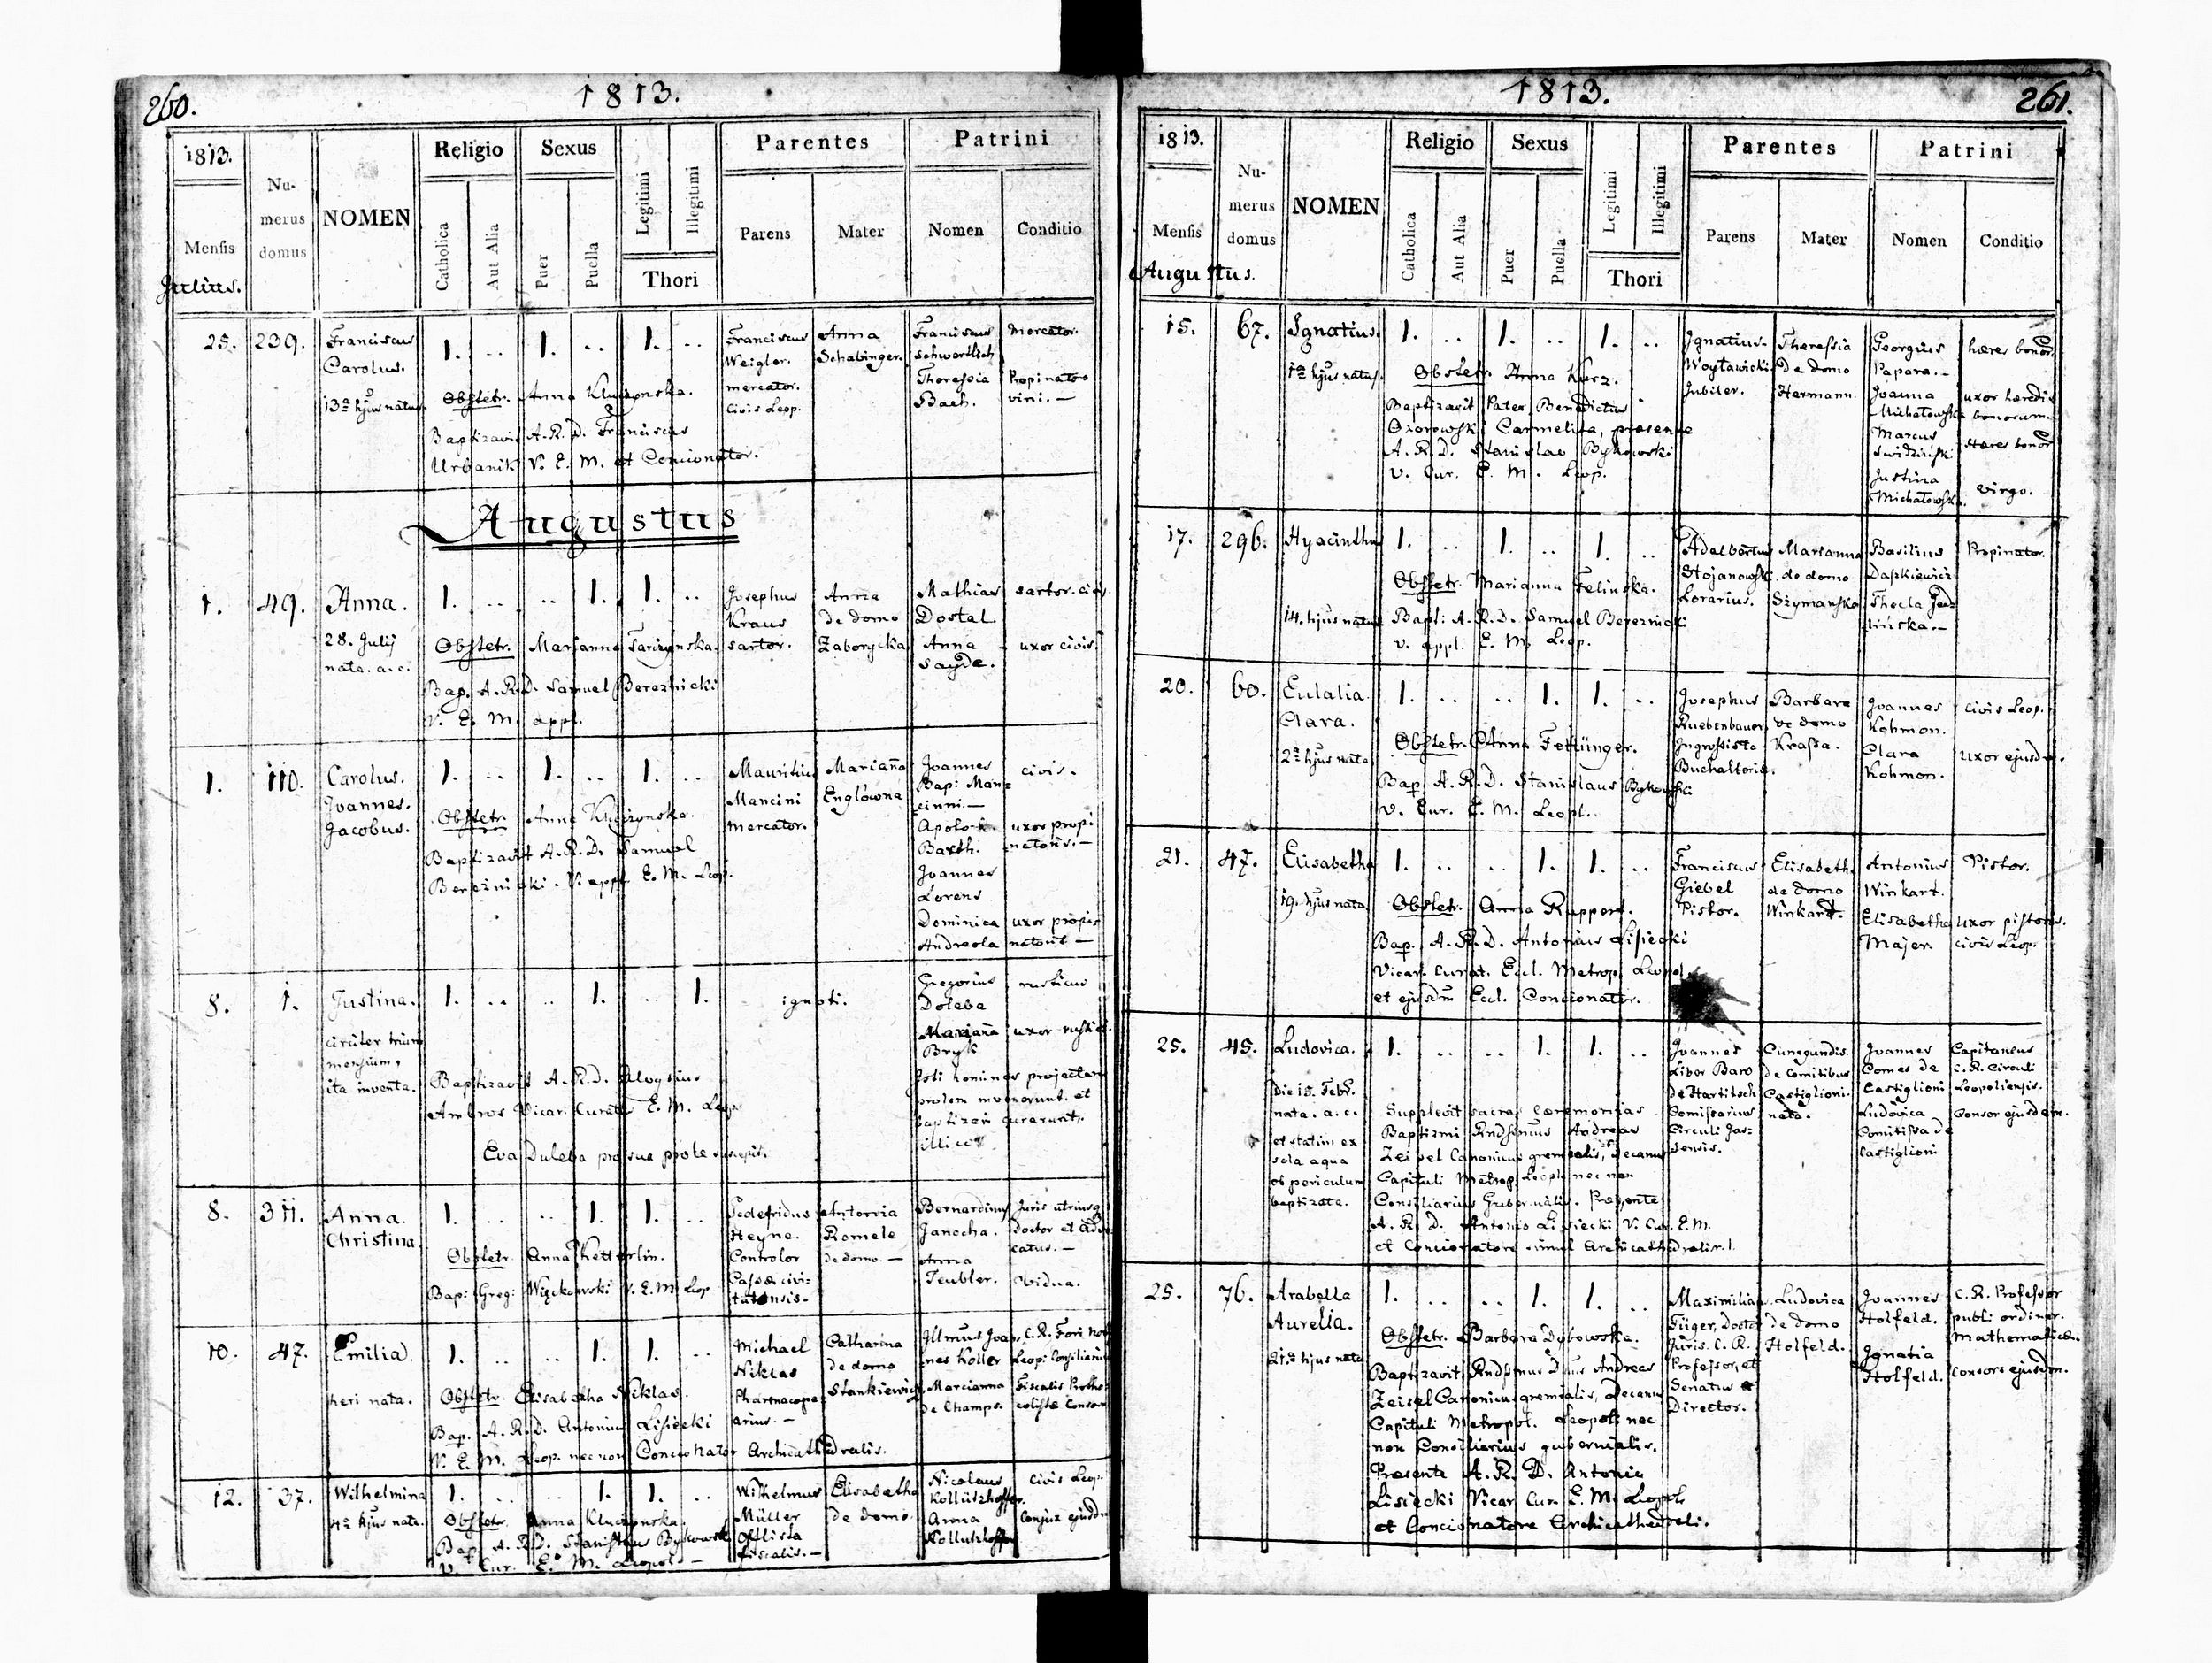 260.
1813.
1813.
Mensis
Julius.
Nu-
merus
domus
NOMEN
Religio
Catholica
Aut Alia
Sexus
Puer
Puella
Legitimi
Illegitimi
Thori
Parentes
Parens
Mater
Patrini
Nomen
Conditio
25.
239.
Franciscus
Carolus.
13a hjus natus.
1. .. 1. .. 1. ..
Obstetr. Anna Kluczynska.
Baptizavit A. R. D. Franciscus
Urbanik V. E. M. et Concionator.
Franciscus
Weigler.
mercator.
civis Leop.
Anna
Schabinger.
Franciscus
Theressia
Bach.
Mercator.
Propinator
vini. —
Augustus
1.
49.
Anna.
28. Julij
nata. a. c.
1. .. .. 1. 1. ..
Obstetr. Marianna
Bap. A. R. D. Samuel Bereznicki
V. E. M. appl.
Josephus
Kraus
sartor.
Anna
de domo
Zaborycka
Mathias
Dostal
Anna
Sayde.
sartor. civis
uxor civis.
1.
110.
Carolus.
Joannes.
Jacobus.
1. .. 1. .. 1. ..
Obstetr. Anna Kluczynska.
Baptizavit A. R. D. Samuel
Bereznicki. V. appl. E. M. Leop.
Mauritius
Mancini
Mercator.
Mariana
Englowna
Joannes
Bap: Man=
cinni. —
Barth.
Joannes
Lorens
Dominica
Andreola
civis.
uxor propi=
natoris. —
uxor propi=
natoris —
8.
1.
Justina.
circiter trium
mensium,
ita inventa.
1. .. .. 1. .. 1.
Baptizavit A. R. D. Aloysius
Ambros Vicar. Curatus E. M. Leop.
Eva Duleba pro sua prole suscepit.
ignoti.
Gregorius
Doleba
Mariana
Bryk
Isti homines projectam
prolem invenerunt. et
baptizari curarunt.
illico.
rusticus
uxor rustici.
8.
311.
Anna.
Christina
1. .. .. 1. 1. ..
Obstetr. Anna Ketterlin.
Bap: Greg: Więckowski V. E. M. Leop.
Heyne.
Controlor
Cassae civi=
tatensis.
Antonia
Romele
de domo. —
Bernardinus
Janocha.
Anna
Teubler.
Juris utriusq
Doctor et Advo=
catus. —
Vidua.
10.
47.
Emilia.
heri nata.
1. .. .. 1. 1. ..
Obstetr. Elisabetha Niklas.
Bap. A. R. D. Antonius Lisiecki
V. E. M. Leop. nec non Concionator Archicathedralis.
Michael
Niklas
Pharmacopo=
arius. —
Catharina
de domo
Stankiewicz
Illmus Joan=
nes Koller
Marcianna
de Champs.
C. R. Fori Nob:
Leop: Consiliarius
12.
37.
Wilhelmina
4a hjus nata.
1. .. .. 1. 1. ..
Obstetr. Anna Kluczynska.
Bap. A. R. D. Stanislaus Bykowski
V. Cur. E. M. Leopol. —
Wilhelmus
Müller
Officista
fiscalis. —
Elisabetha
de domo
Nicolaus
Kollutzhoffer.
Anna
Kollutzhoffer
Civis Leop.
Conjux ejusdm
1813.
261.
1813.
Mensis
Augustus.
Nu-
merus
domus
NOMEN
Religio
Catholica
Aut Alia
Sexus
Puer
Puella
Legitimi
Illegitimi
Thori
Parentes
Parens
Mater
Patrini
Nomen
Conditio
15.
67.
Ignatius.
1a hjus natus.
1. .. 1. .. 1. ..
Obstetr. Anna Kurz.
Baptizavit Pater Benedictus
Ozorowski Carmelita, praesente
A. R. D. Stanislao Bykowski
V. Cur. E. M. Leop.
Ignatius
Woytawicki
Jubiler.
Theressia
De domo
Hermann.
Georgius
Papara. —
Joanna
Michałowska
Marcus
Swidzinski
Justina
Michałowska.
haeres bonor.
uxor haeredis
bonorum.
Haeres bonor.
Virgo.
17.
296.
Hyacinthus
14. hjus natus
1. .. 1. .. 1. ..
Obstetr. Marianna Felinska.
Bapt: A. R. D. Samuel Bereznicki
V. appl. E. M. Leop.
Adalbertus
Stojanowski
Lorarius.
Marianna
de domo
Szymanska
Basilius
Daszkiewicz
Thecla
Propinator.
20.
60.
Eulalia.
Clara.
2a hjus nata
1. .. .. 1. 1. ..
Obstetr. Anna Fetlinger.
Bap. A. R. D. Stanislaus Bykowski
V. Cur. E. M. Leopl.
Josephus
Ruebenbauer
Ingrossista
Buchalteria.
Barbara
de domo
Krassa.
Joannes
Kohmon.
Clara
Kohmon.
civis Leop.
uxor ejusdm.
21.
47.
Elisabetha
19. hjus nata
1. .. .. 1. 1. ..
Obstetr. Anna Rappert.
Bap. A. R. D. Antonius Lisiecki
Vicar. Curat. Eccl. Metrop. Leopol.
et ejusdm Eccl. Concionator.
Franciscus
Giebel
Pistor.
Elisabetha
de domo
Winkart.
Antonius
Winkart.
Elisabetha
Majer.
Pistor.
uxor pistoris.
civis Leop.
25.
45.
Ludovica.
Die 15. Febr.
nata. a. c.
et statim ex
sola aqua
ob periculum
baptizata.
1. .. .. 1. 1. ..
Supplevit sacras caeremonias
Baptismi Rndssimus Andreas
Zeisel Canonicus gremialis, Decanus
Capituli Metrop. Leopl. nec non
Consiliarius Gubernialis. Praesente
A. R. D. Antonio Lisiecki V. Cur. E. M.
et Concionatore simul Archicathedralis.
Joannes
Liber Baro
de Hartitsch
Comissarius
Circuli Jas=
lensis.
Cunegundis
de Comitibus
Castiglioni
nata.
Joannes
Comes de
Castiglioni
Ludovica
Comitissa de
Castiglioni
Capitaneus
C. R. Circuli
Leopoliensis.
Consor ejusdem.
25.
76.
Arabella
Aurelia.
21a hjus nata
1. .. .. 1. 1. ..
Obstetr. Barbara Dybowska.
Baptizavit Rndssimus Dnus Andreas
Zeisel Canonicus gremialis, Decanus
Capituli Metropol. Leopol: nec
non Consiliarius gubernialis.
Praesente A. R. D. Antonio
Lisiecki Vicar. Cur. E. M. Leopol.
et Concionatore Archicathedrali.
Maximilian
Füger, Doctor
Juris. C. R.
Professor, et
Senatus
Director.
Ludovica
de domo
Holfeld.
Joannes
Holfeld.
Ignatia
Holfeld.
C. R. Professor
publi ordiner.
Mathematicae.
Consors ejusdm.